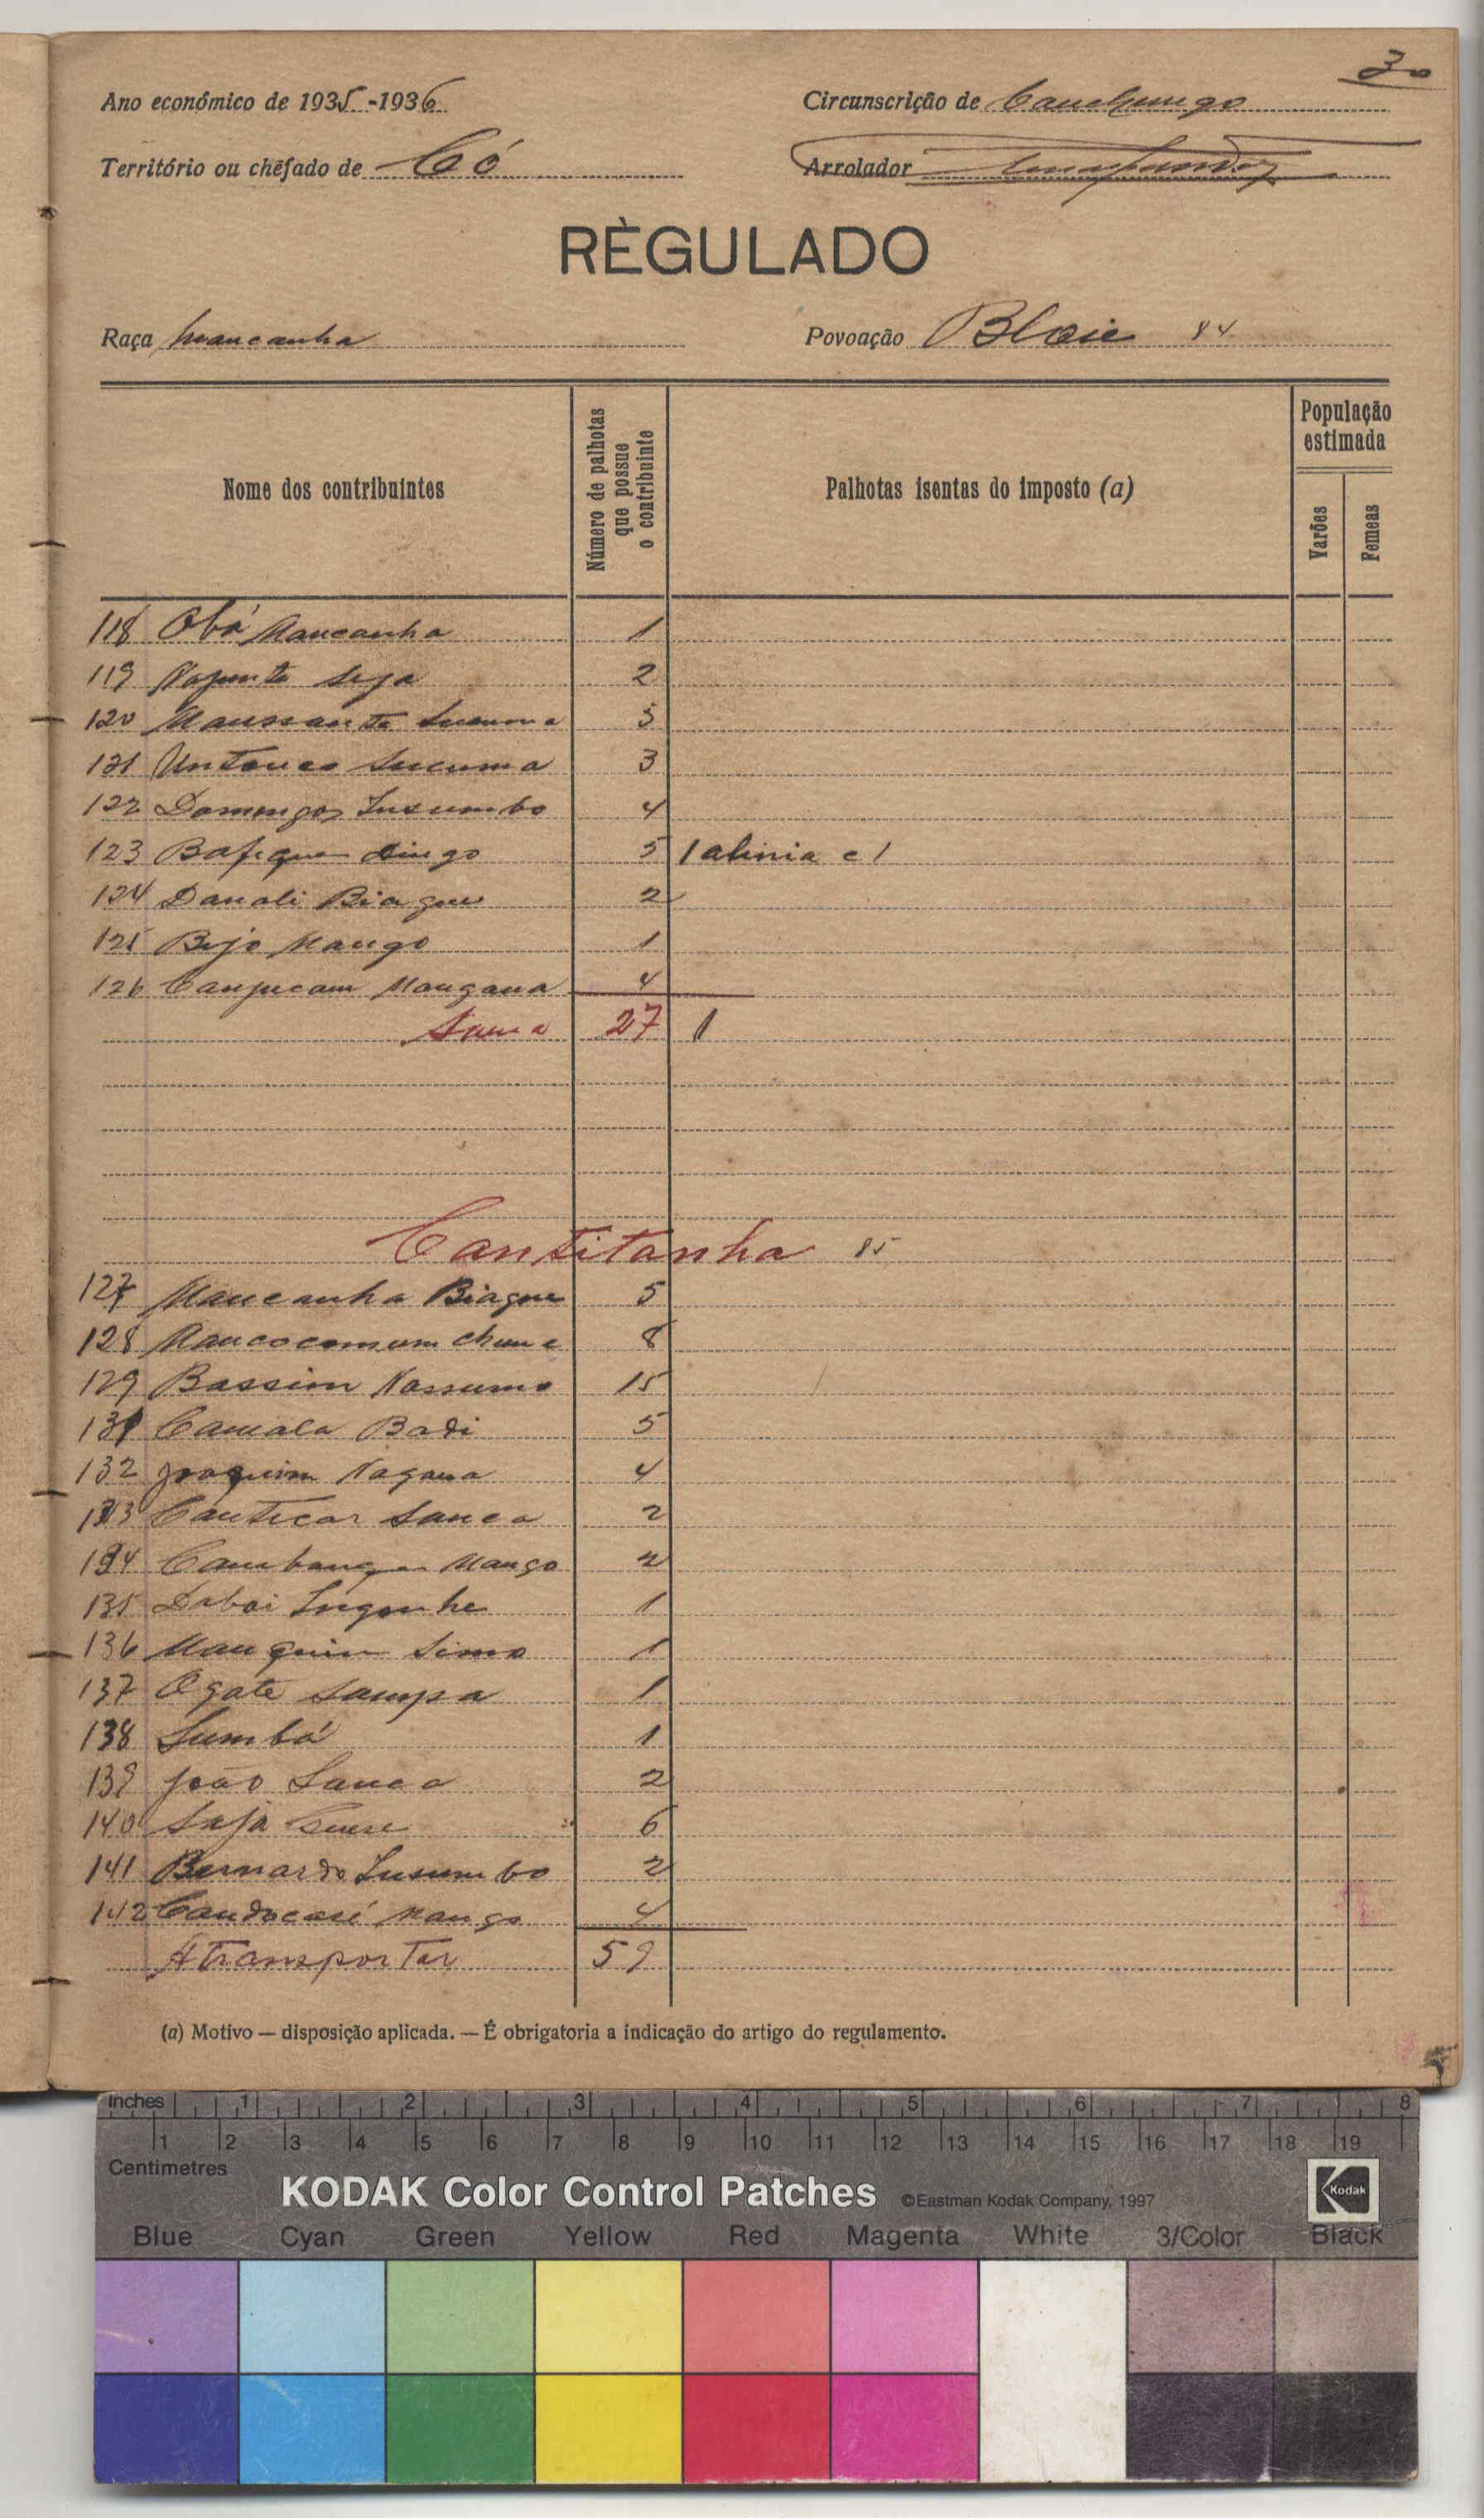 30
Ano económico de 1935-1936 Circunscrição de Canchungo
Território ou chêfado de Có Arrolador
RÈGULADO
Raça mancanha Povoação Blaie 84
Nome dos contribuintes Número de palhotas que possue o contribuinte Palhotas isentas do imposto (a) População estimada Varões Femeas
118 Obá Mancanha 1
119 Napunte 2
120
121 Sucuma 3
122 Domingos Insumbo 4
123 Bafique Dingo 5 1 alinia c/
124 Danoli Biague 2
125 Bijo Mango 1
126 Mangana 4
Soma 27 1
Cantitanha 85
127 Mancanha Biague 5
128 8
129 Bassim Nassumo 15
131 Camala Badi 5
132 Joaquim Nagana 4
133 Canticar Sanca 2
134 Mango 2
135 Ingenhe 1
136 Manquin Simo 1
137 Ogate Sampa 1
138 Sumbá 1
139 João Sanca 2
140 6
141 Bernardo Insumbo 2
142 Mango 4
A transportar 59
(a) Motivo — disposição aplicada. — É obrigatoria a indicação do artigo do regulamento.
Inches 1 2 3 4 5 6 7 8
1 2 3 4 5 6 7 8 9 10 11 12 13 14 15 16 17 18 19
Centimetres
KODAK Color Control Patches ©Eastman Kodak Company, 1997 Kodak
Blue Cyan Green Yellow Red Magenta White 3/Color Black